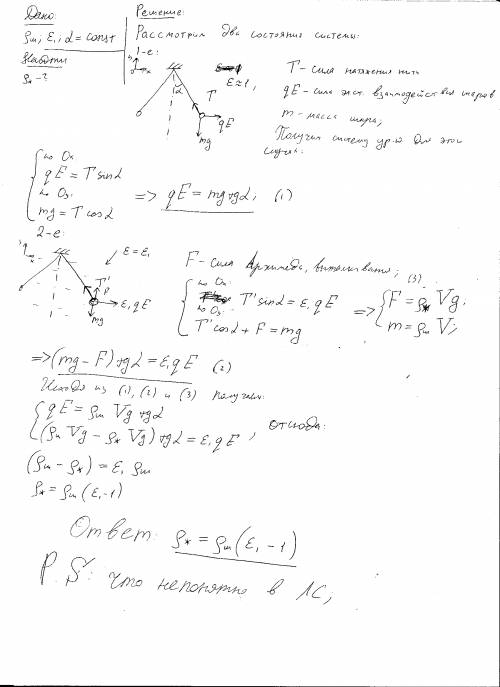 Дано:
ρш, ε₁, α = const
Найти
ρж - ?
Решение:
Рассмотрим два состояния системы:
1-е:
ε≈1,
α
T
qE
mg
T - сила натяжения нити
qE - сила эл. взаимодействия шаров
m - масса шара;
Получим систему ур-й для этих
случаях:
на Ox
qE = T sinα
на Oy
mg = T cosα
=> qE = mg tgα; (1)
2-е:
ε = ε₁
T'
F
ε₁qE
mg
F - сила Архимеда, выталкиват.;
на Ox
T' sinα = ε₁qE
на Oy
T' cosα + F = mg
=>
(3)
F = ρж Vg;
m = ρш V;
=> (mg - F) tgα = ε₁qE (2)
Исходя из (1), (2) и (3) получим:
qE = ρш Vg tgα
(ρш Vg - ρж Vg) tgα = ε₁qE, отсюда:
(ρш - ρж) = ε₁ ρш
ρж = ρш (ε₁-1)
Ответ: ρж = ρш (ε₁-1)
P.S.: что непонятно в ЛС,